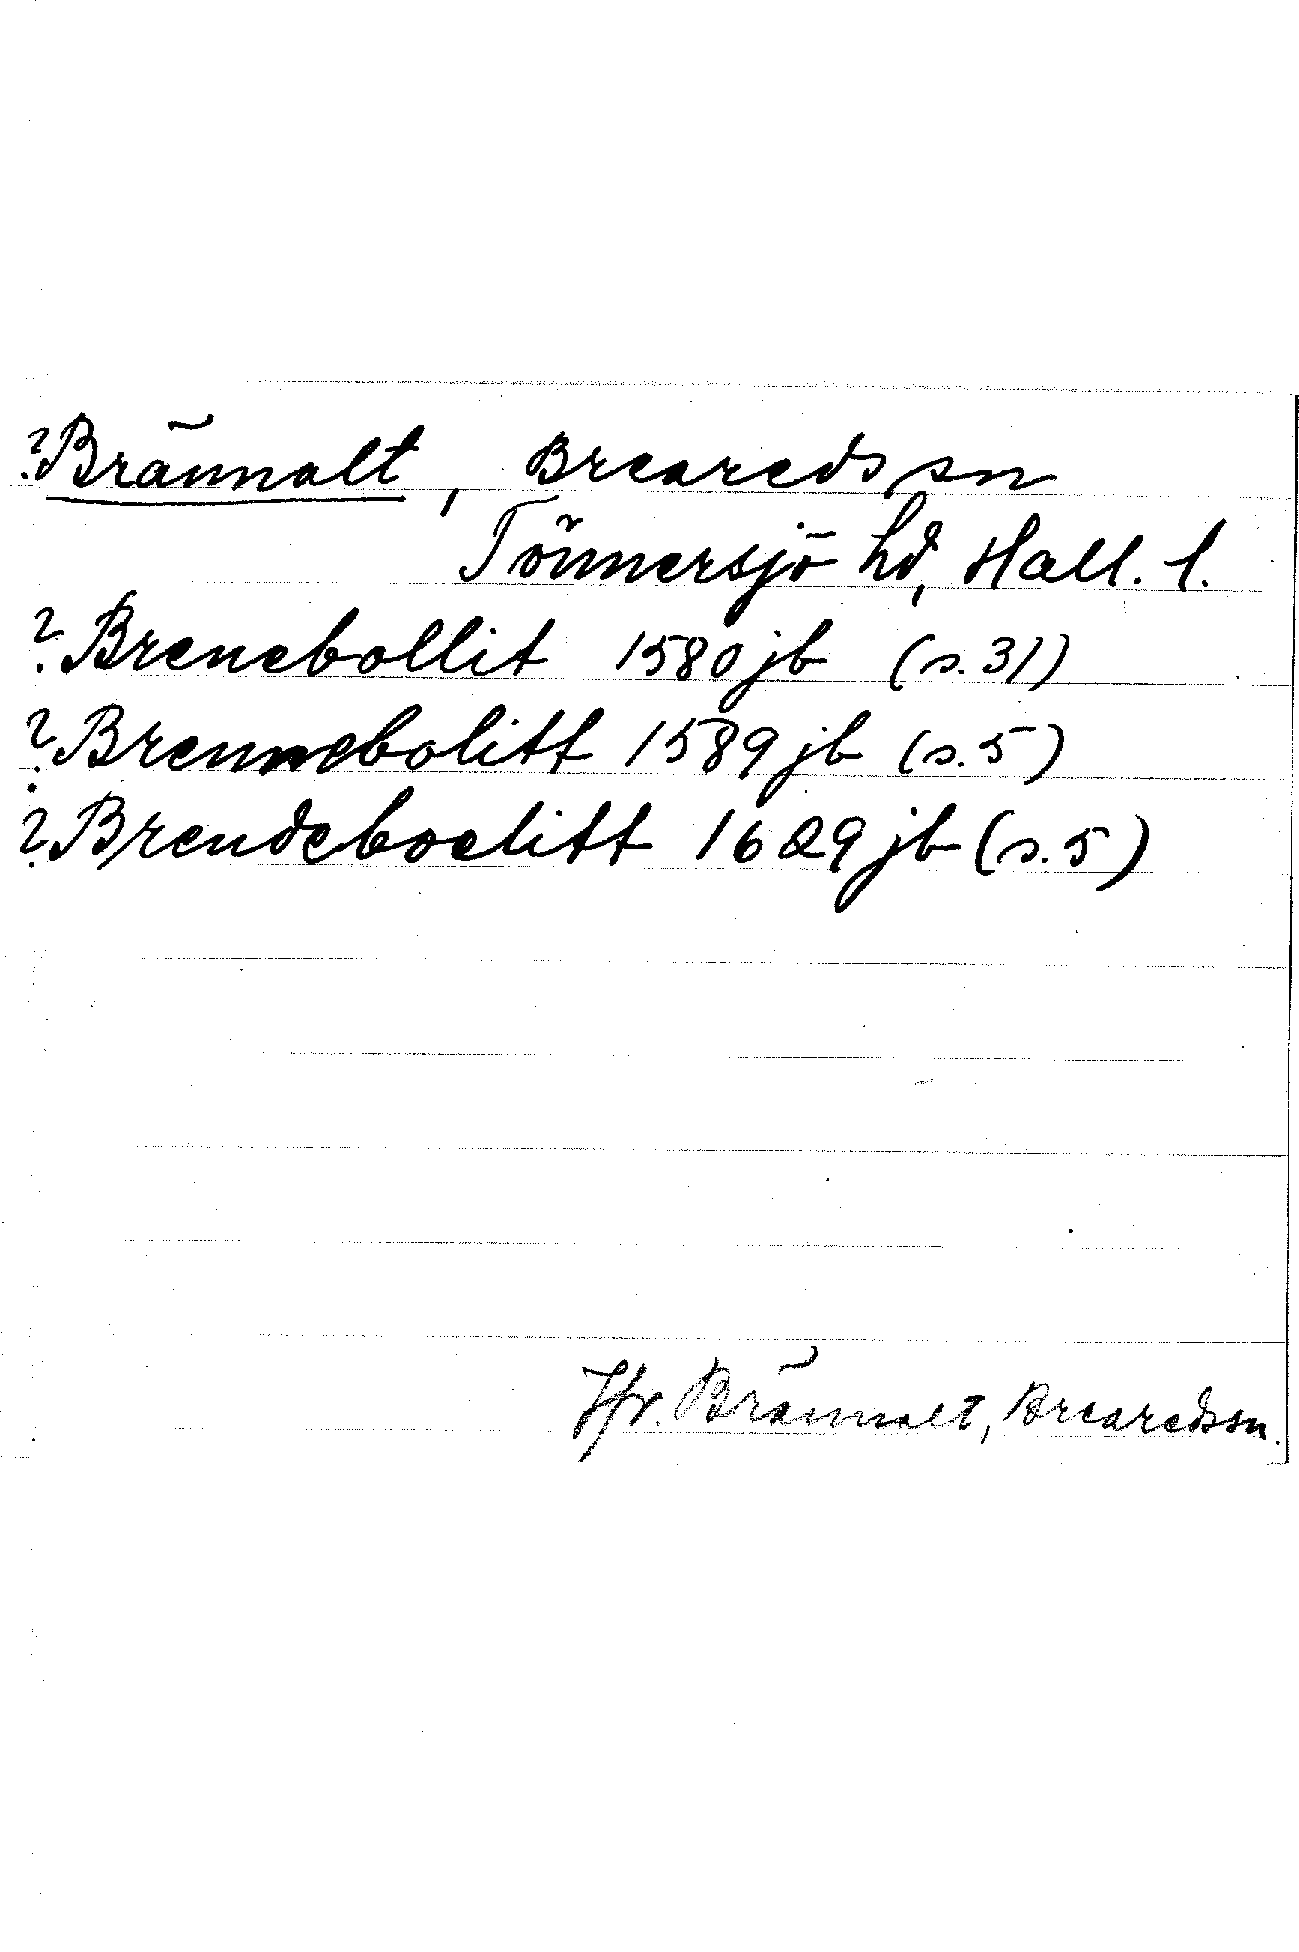 ?Brännalt, Breareds sn
Tönnersjö hd, Hall. l.
?Brenebollit 1580 jb (s. 31)
?Brennebolitt 1589 jb (s. 5)
?Brendeboelitt 1629 jb (s. 5)
Jfr. Brännalt, Breareds sn.